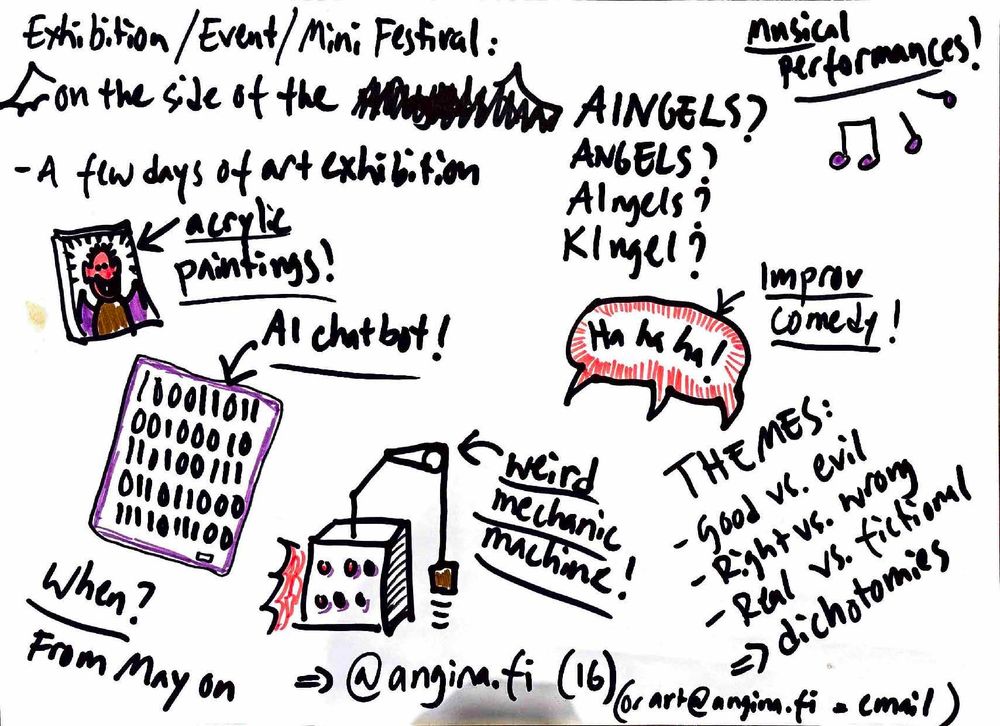 Exhibition/Event/Mini Festival:
on the side of the
- A few days of art exhibition
acrylic
paintings!
AI chatbot!
100011011
001000010
111100111
011011000
11111011100
When?
From May on
Musical
performances!
AINGELS?
ANGELS?
AIngels?
KIngel?
Improv
comedy!
Ha ha ha!
weird
mechanic
machine!
THEMES:
- Good vs. evil
- Right vs. wrong
- Real vs. fictional
=> dichotomies
=> @angina.fi (16) (or art@angina.fi = email)